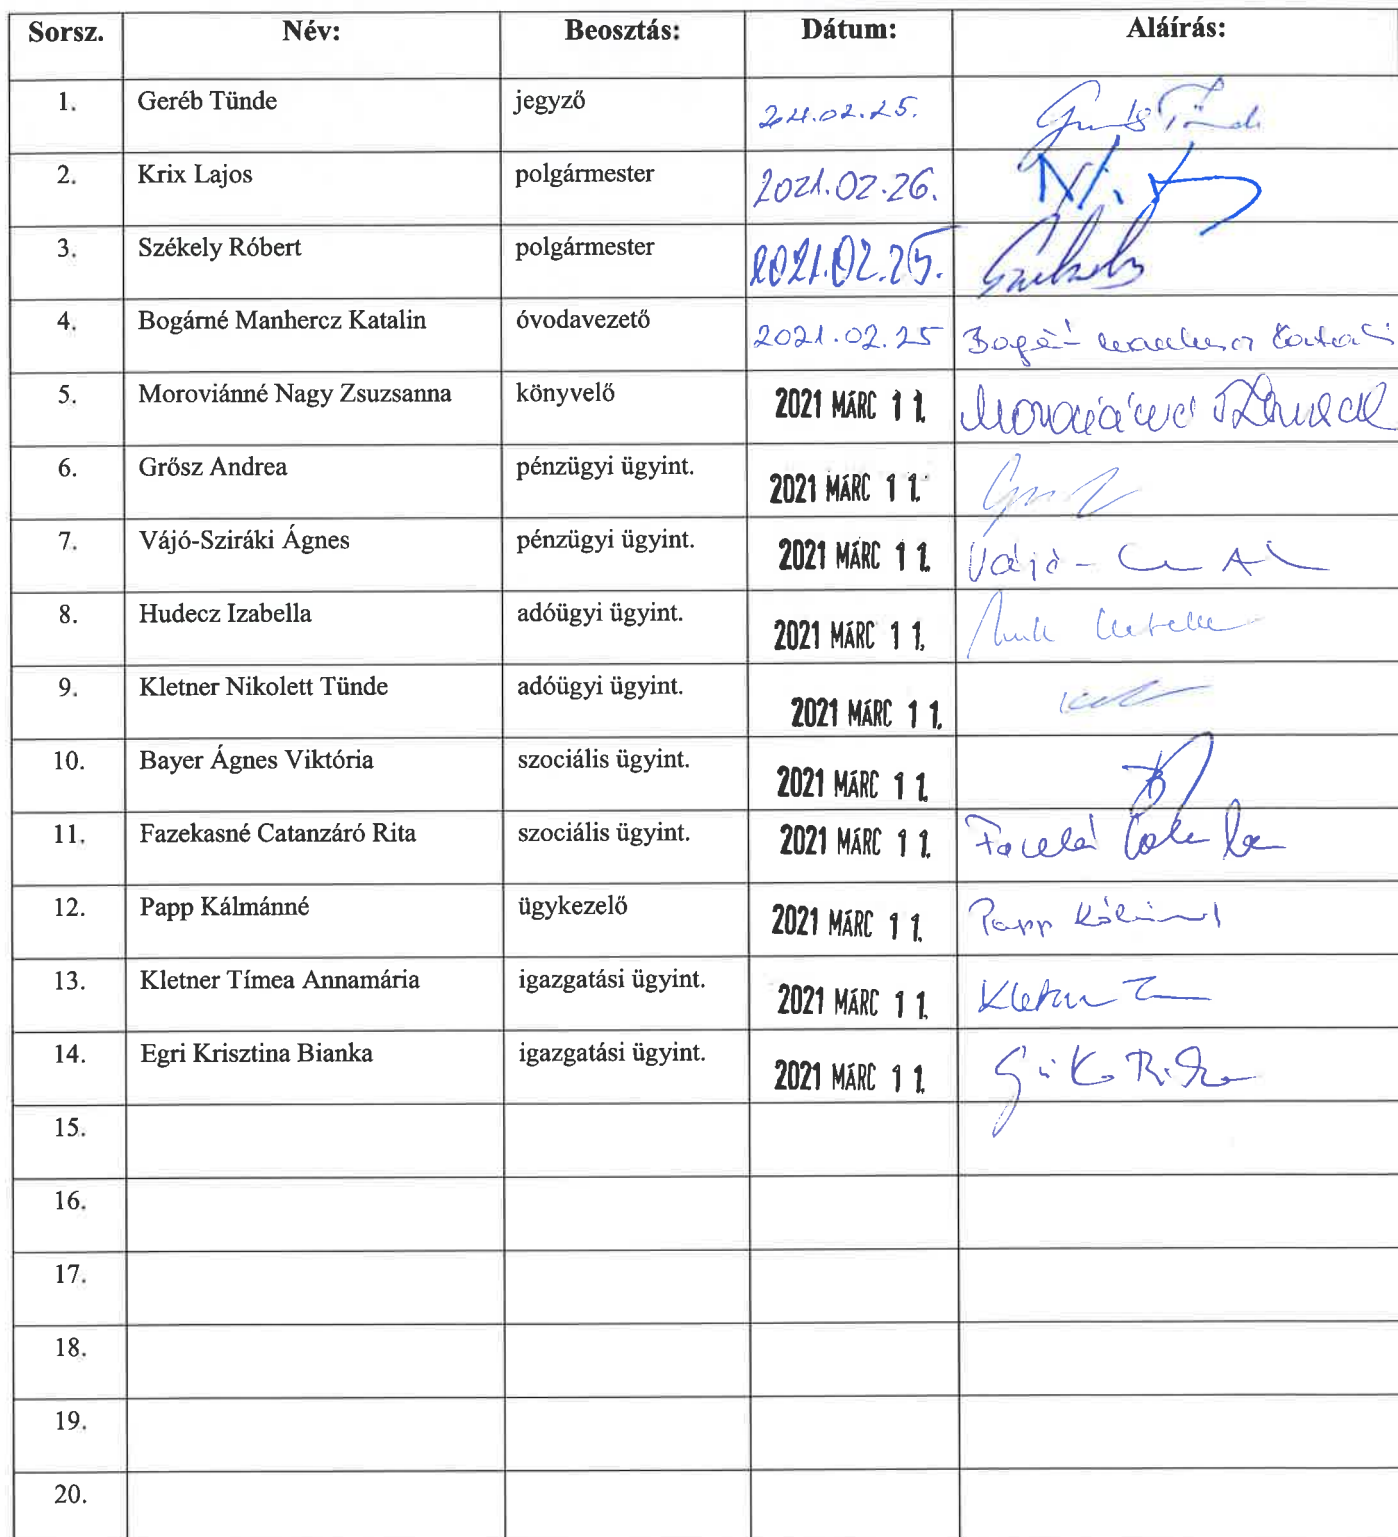 Sorsz. Név: Beosztás: Dátum: Aláírás:
1. Geréb Tünde jegyző 2021.02.25.
2. Krix Lajos polgármester 2021.02.26.
3. Székely Róbert polgármester 2021.02.25.
4. Bogárné Manhercz Katalin óvodavezető 2021.02.25
5. Moroviánné Nagy Zsuzsanna könyvelő 2021 MÁRC 11.
6. Grősz Andrea pénzügyi ügyint. 2021 MÁRC 11.
7. Vájó-Sziráki Ágnes pénzügyi ügyint. 2021 MÁRC 11.
8. Hudecz Izabella adóügyi ügyint. 2021 MÁRC 11.
9. Kletner Nikolett Tünde adóügyi ügyint. 2021 MÁRC 11.
10. Bayer Ágnes Viktória szociális ügyint. 2021 MÁRC 11.
11. Fazekasné Catanzáró Rita szociális ügyint. 2021 MÁRC 11.
12. Papp Kálmánné ügykezelő 2021 MÁRC 11. Papp Kálmánné
13. Kletner Tímea Annamária igazgatási ügyint. 2021 MÁRC 11.
14. Egri Krisztina Bianka igazgatási ügyint. 2021 MÁRC 11.
15.
16.
17.
18.
19.
20.